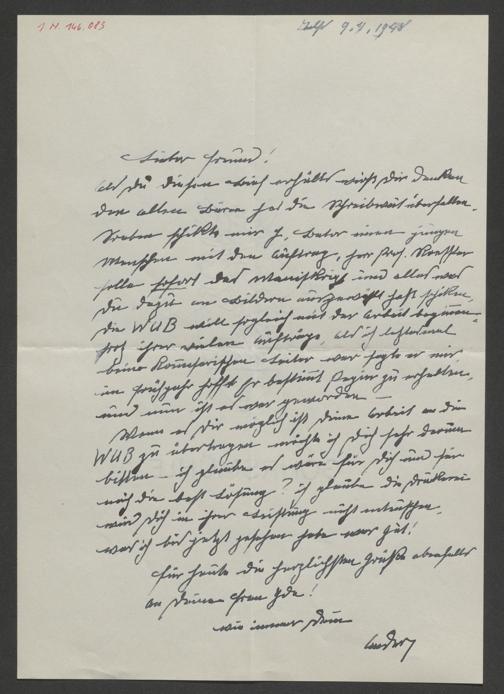 I. N. 146.083
9.4.1948
Lieber Freund!
als Du diesen Brief erhältst wirst Dir denken
den alten Bären hat die Schreibwut überfallen.
Soeben schickte mir H. einen jungen
Menschen mit dem Auftrag, Herr Prof. Roessler
solle sofort das Manuskript und alles was
Du dazu an Bildern ausgewählt hast schicken,
die WUB will sogleich mit der Arbeit beginnen
trotz ihrer vielen Aufträge, als ich letztesmal
beim Leiter war sagte er mir
im Frühjahr hofft Er bestimmt Papier zu erhalten,
und nun ist es wahr geworden –
Wenn es Dir möglich ist Deine Arbeit an die
WUB zu übertragen möchte ich Dich sehr darum
bitten – ich glaube es wäre für Dich und für
mich die beste Lösung? ich glaube die Druckerei
wird Dich in ihrer Leistung nicht enttäuschen,
was ich bis jetzt gesehen habe war gut!
Für heute die herzlichsten Grüße ebenfalls
an Deine Frau Ida!
wie immer Dein